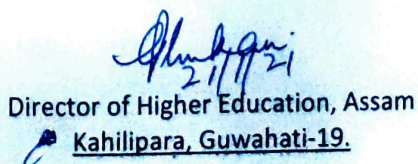 21/1/21
Director of Higher Education, Assam
Kahilipara, Guwahati-19.